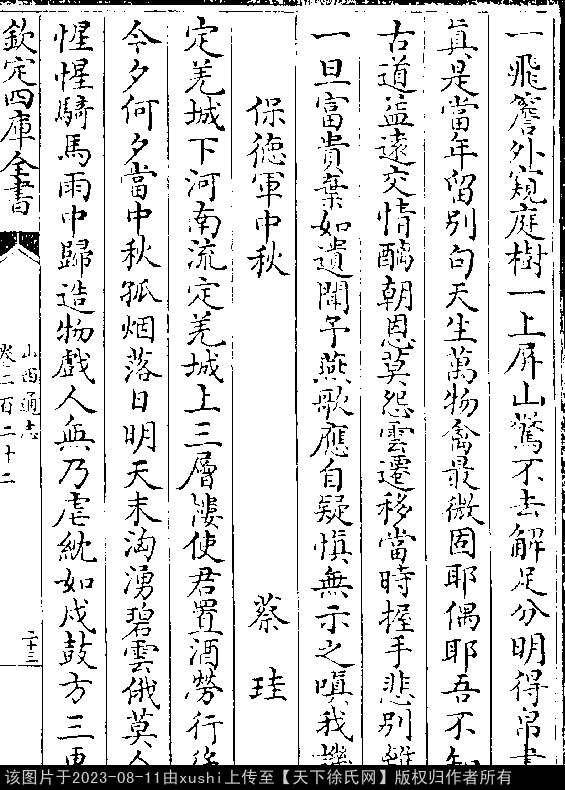 一飛簷外窺庭樹一上屏山驚不去解足分明得帛書
真是當年留別句天生萬物禽最微固耶偶耶吾不知
古道益遠交情醨朝恩莫怨雲遷移當時握手悲別離
一旦富貴棄如遺聞予燕歌應自疑慎無示之嗔我譏
保德軍中秋 蔡珪
定羌城下河南流定羌城上三層樓使君置酒勞行
今夕何夕當中秋孤烟落日明天末洶湧碧雲俄莫
惺惺騎馬雨中歸造物戲人無乃虐紞如戍鼓方三更
欽定四庫全書
山西通志
卷二百二十二
二十三
该图片于2023-08-11由xushi上传至【天下徐氏网】版权归作者所有